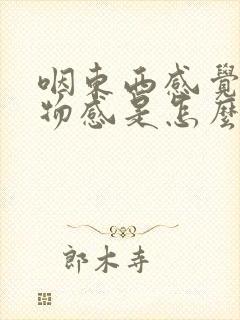 咽東西感覺
物感是怎麼
郎木寺